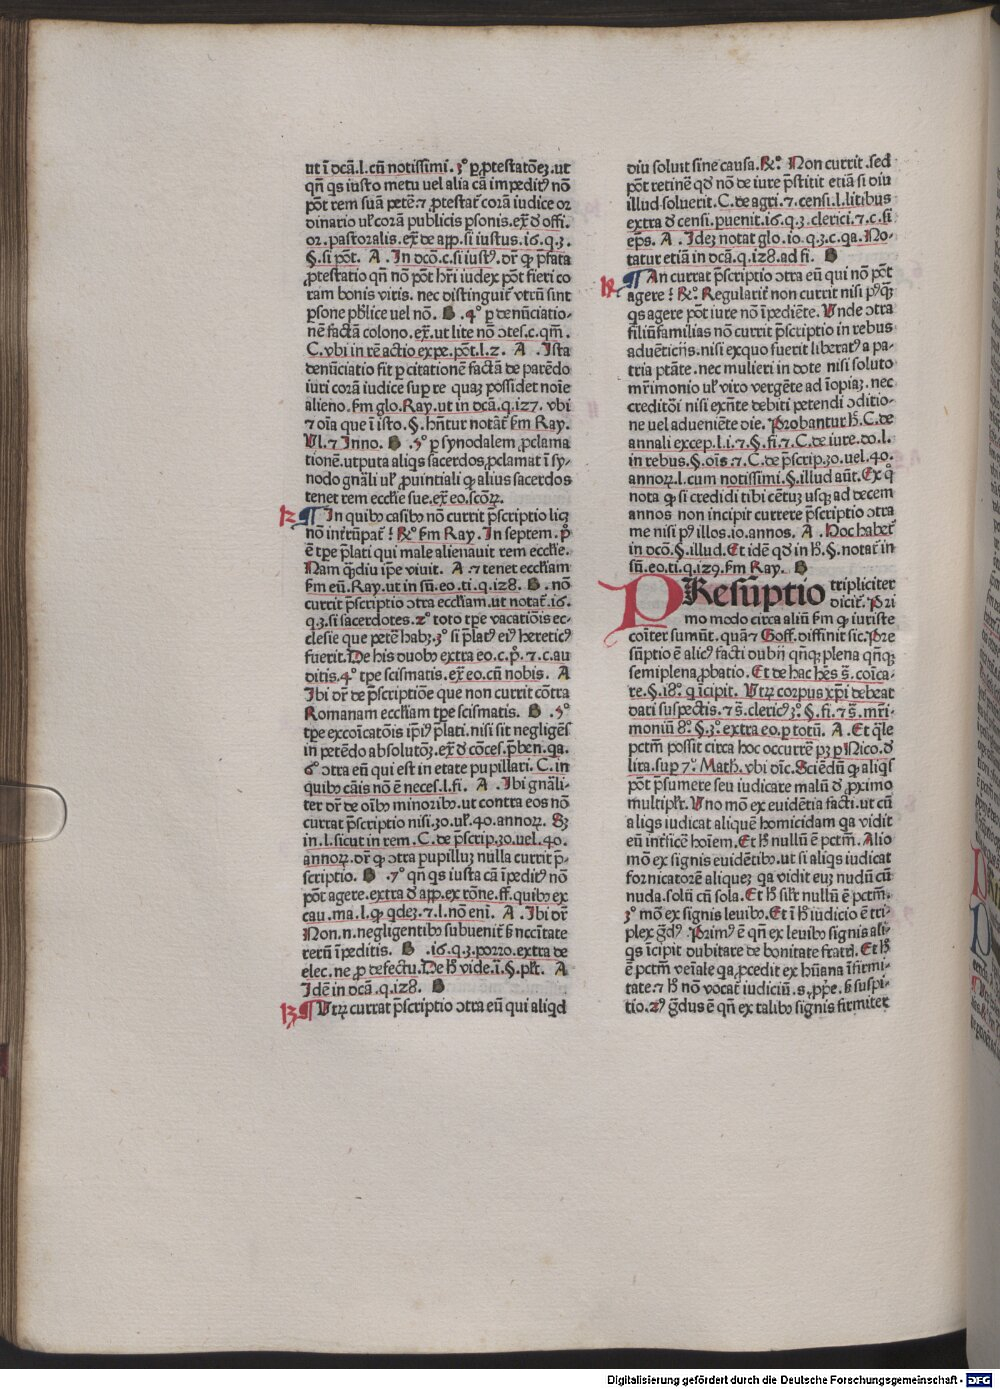 ut ī dcā.l.cū notissimi.3° ꝑ ꝓtestatōeꝫ.ut
qn̄ qs iusto metu uel alia cā impeditꝰ nō
pōt rem suā petē⁊ ꝓtestat᷑ corā iudice or
dinario ul᷑ corā publicis ꝑsonis.ex̄ d offi.
or.pastoralis.ex̄ de app.si iustus.16.q.3.
§.si pōt. A .In dcō.c.si iustꝰ.dr̄ ꝙ p̄fata
ꝓtestatio qn̄ nō pōt hr̄i iudex pōt fieri co
ram bonis viris.nec distinguit᷑ vtrū sint
ꝑsone pb̄lice uel nō. B .4° ꝑ denūciatio-
nē factā colono.ex̄.ut lite nō ↄtes.c.qm̄.
C.vbi in rē actio expe.pōt.l.2. A .Ista
denūciatio fit ꝑ citationē factā de parēdo
iuri corā iudice suꝑ re quaꝫ possidet noīe
alieno.ẜm glo.Ray.ut in dcā.q.127.vbi
⁊ oīa que ī isto.§.hn̄tur notat᷑ ẜm Ray.
Vl.⁊ Inno. B .5° ꝑ synodalem ꝓclama
tionē.utputa aliqs sacerdos ꝓclamat ī sy-
nodo gn̄ali ul᷑ ꝓuintiali ꝙ alius sacerdos
tenet rem eccl̄ie sue.ex̄ eo.scōꝝ.
12 ¶ In quibꝰ casibꝰ nō currit p̄scriptio licꝫ
nō int̄rūpat᷑ ! ℞° ẜm Ray.In septem.p°
ē tꝑe p̄lati qui male alienauit rem eccl̄ie.
Nam qᷓdiu ip̄e viuit. A ⁊ tenet eccl̄iam
ẜm eū.Ray.ut in sū.eo.ti.q.128. B .nō
currit p̄scriptio ↄtra eccl̄iam.ut notat᷑.16.
q.3.si sacerdotes.2° toto tꝑe vacatiōis ec-
clesie que petē habꝫ.3° si p̄latꝰ eiꝰ hereticꝰ
fuerit.De his duobꝰ extra eo.c.p°.⁊.c.au
ditis.4° tꝑe scismatis.ex̄ eo.cū nobis. A
Ibi dr̄ de p̄scriptiōe que non currit cōtra
Romanam eccl̄iam tꝑe scismatis. B .5°
tꝑe excōicatōis ip̄iꝰ p̄lati.nisi sit negligēs
in petēdo absolutōꝫ.ex̄ d cōces.p̄ben.qa.
6° ↄtra eū qui est in etate pupillari.C.in
quibꝰ cāis nō ē neces.l.fi. A .Ibi gn̄ali-
ter dr̄ de oībꝰ minoribꝰ.ut contra eos nō
currat p̄scriptio nisi.30.ul᷑.40.annoꝝ. Sꝫ
in.l.sicut in rem.C.de p̄scrip.30.uel.40.
annoꝝ.dr̄ ꝙ ↄtra pupilluꝫ nulla currit p̄-
scriptio. B .7° qn̄ qs iusta cā īpeditꝰ nō
pōt agere.extra d app.ex rōne.ff.quibꝰ ex
cau.ma.l.ꝙ qdeꝫ.⁊.l.nō eni. A .Ibi dr̄
Non.n.negligentibꝰ subuenit᷑ ẜ nccītate
rerū īpeditis. B .16.q.3.porro.extra de
elec.ne ꝓ defectu.De ꝉ vide.ī.§.pl᷑t. A
Idē in dcā.q.128. B
13 ¶ Utꝝ currat p̄scriptio ↄtra eū qui aliqd
diu soluit sine causa.℞°. Non currit.sed
pōt retinē qd nō de iure p̄stitit etiā si diu
illud soluerit.C.de agri.⁊.censi.l.litibus
extra d censi.puenit.16.q.3.clerici.⁊.c.si
ep̄s. A .Ideꝫ notat glo.10.q.3.c.qa.No-
tatur etiā in dcā.q.128.ad fi. B
14 ¶ An currat p̄scriptio ↄtra eū qui nō pōt
agere ! ℞°. Regularit᷑ non currit nisi pꝰqꝫ
qs agere pōt iure nō īpediēte. Unde ↄtra
filiūfamilias nō currit p̄scriptio in rebus
aduēticijs.nisi exquo fuerit liberatꝰ a pa-
tria ptāte.nec mulieri in dote nisi soluto
mr̄imonio ul᷑ viro vergēte ad īopiaꝫ.nec
creditōi nisi exn̄te debiti petendi ↄditio-
ne uel adueniēte die. Probantur ꝉ.C.de
annali excep.l.i.⁊.§.fi.⁊.C.de iure.do.l.
in rebus.§.oīs.⁊.C.de p̄scrip.30.uel.40.
annoꝝ.l.cum notissimi.§.illud aūt.Ex q°
nota ꝙ si credidi tibi cētuꝫ usqꝫ ad decem
annos non incipit currere p̄scriptio ↄtra
me nisi pꝰ illos.10.annos. A .Hoc habet᷑
in dcō.§.illud.Et idē qd in ꝉ.§.notat᷑ in
sū.eo.ti.q.129.ẜm Ray. B
PResūptio tripliciter
dicit᷑.Pri
mo modo circa aliū ẜm ꝙ iuriste
cōiter sumūt.quā⁊ Goff.diffinit sic.Pre
sūptio ē alicꝰ facti dubij qn̄qꝫ plena qn̄qꝫ
semiplena ꝓbatio. Et de hac hēs s̄.cōica-
re.§.18°.q īcipit. Utꝝ corpus xp̄i debeat
dari suspectis.⁊ s̄.clericꝰ 3°.§.fi.⁊ s̄.mr̄i-
moniū 8°.§.3°.extra eo.ꝑ totū. A .Et qᷓle
pctm̄ possit circa hoc occurrē pꝫ ꝑ Nico.d
lira.suꝑ 7.° Math.vbi dīc.Sciēdū ꝙ aliqs
pōt p̄sumere seu iudicare malū d ꝓximo
multipl᷑r. Uno mō ex euidētia facti.ut cū
aliqs iudicat aliquē homicidam qa vidit
eū int̄ficē hoīem.Et ꝉ nullū ē pctm̄.Alio
mō ex signis euidētibꝰ.ut si aliqs iudicat
fornicatorē aliqueꝫ qa vidit euꝫ nudū cū
nuda.solū cū sola.Et ꝉ sil᷑r nullū ē pctm̄.
3° mō ex signis leuibꝰ.Et ī ꝉ iudicio ē tri-
plex gᷓdꝰ. Primꝰ ē qn̄ ex leuibꝰ signis ali-
qs īcipit dubitare de bonitate frat̄s.Et ꝉ
ē pctm̄ veīale qa ꝓcedit ex hūana īfirmi-
tate.⁊ ꝉ nō vocat᷑ iudiciū.s.ꝓp̄e.ẜ suspi-
tio.2ꝰ gᷓdus ē qn̄ ex talibꝰ signis firmiter
Digitalisierung gefördert durch die Deutsche Forschungsgemeinschaft - DFG